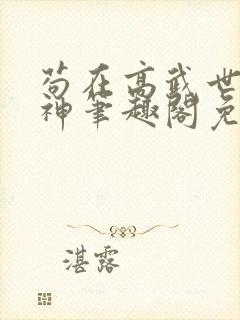 苟在高武世
神笔趣阁免
湛露